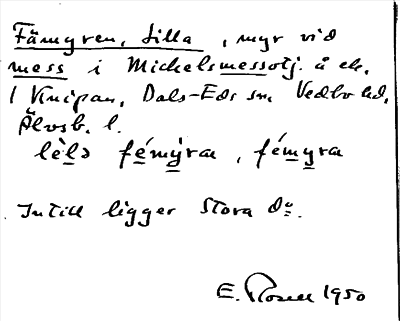 Fämyren, Lilla, myr vid
mess i Michelsmessotj. å ek.
1 Knipan, Dals-Eds sn Vedbo hd,
Älvsb. l.
lèlɔ fémỳra, fémyra
Intill ligger Stora do.
E. Rosell 1950